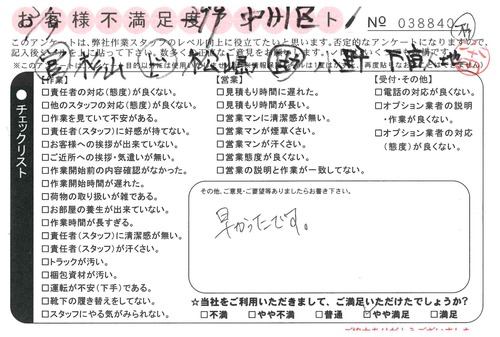 お客様不満足度
ト
No 038840
このアンケートは、弊社作業スタッフのレベル向上に役立てたいと思います。否定的なアンケートになりますので、
【作業】
□責任者の対応(態度)が良くない。
□他のスタッフの対応(態度)が良くない。
□作業を見ていて不安がある。
□責任者(スタッフ)に好感が持てない。
□お客様への挨拶が出来ていない。
□ご近所への挨拶・気遣いが無い。
□作業開始前の内容確認がなかった。
□作業開始時間が遅れた。
□荷物の取り扱いが雑である。
□お部屋の養生が出来ていない。
□作業時間が長すぎる。
□責任者(スタッフ)に清潔感が無い。
□責任者(スタッフ)が汗くさい。
□トラックが汚い。
□梱包資材が汚い。
□運転が不安(下手)である。
□靴下の履き替えをしてない。
□スタッフにやる気がみられない。
【営業】
□見積もり時間に遅れた。
□見積もり時間が長い。
□営業マンに清潔感が無い。
□営業マンが煙草くさい。
□営業マンが汗くさい。
□営業態度が良くない。
□営業の説明と作業が一致してない。
【受付・その他】
□電話の対応が良くない。
□オプション業者の説明
・作業が良くない。
□オプション業者の対応
(態度)が良くない。
チェックリスト
その他、ご意見・ご要望等ありましたらお書き下さい。
早かったです。
☆当社をご利用いただきまして、ご満足いただけたでしょうか?
□不満 □やや不満 □普通 □やや満足 □満足